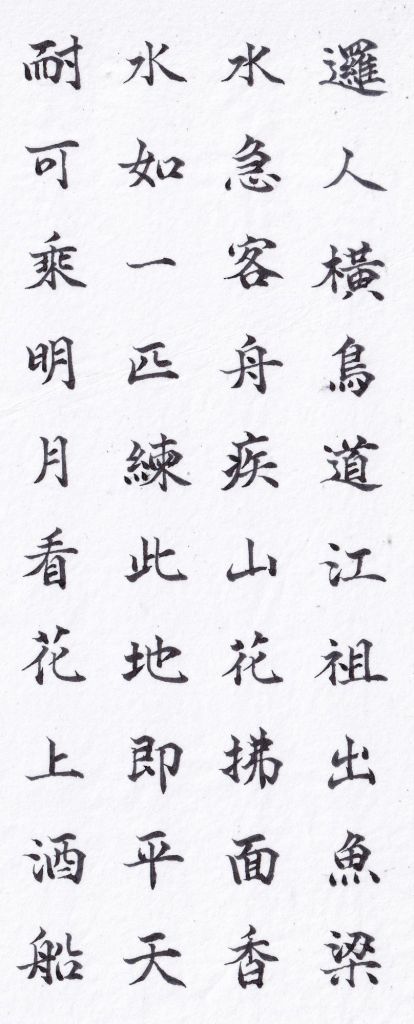 邏人橫鳥道江祖出魚梁
水急客舟疾山花拂面香
水如一匹練此地即平天
耐可乘明月看花上酒船